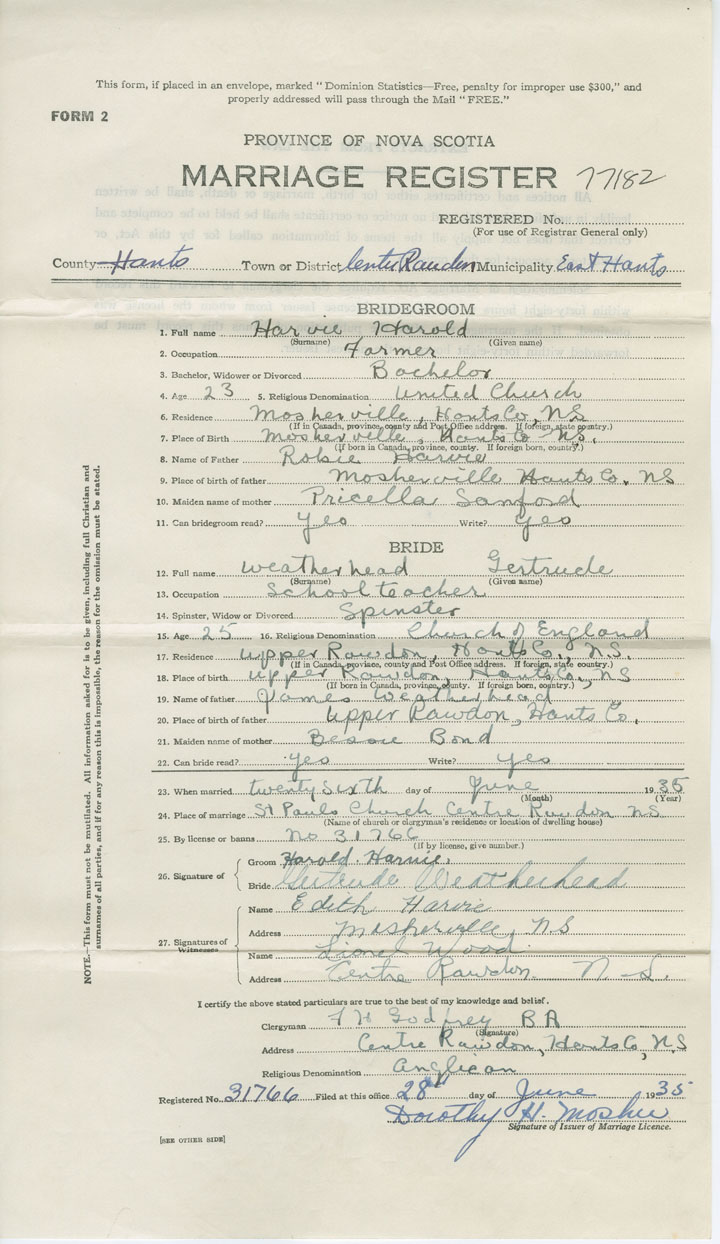 This form, if placed in an envelope, marked "Dominion Statistics—Free, penalty for improper use $300," and
properly addressed will pass through the Mail "FREE."
FORM 2
PROVINCE OF NOVA SCOTIA
MARRIAGE REGISTER 77182
REGISTERED No.
(For use of Registrar General only)
County Hants Town or District Center Rawdon Municipality East Hants
BRIDEGROOM
1. Full name Harvie Harold
(Surname) (Given name)
2. Occupation Farmer
3. Bachelor, Widower or Divorced Bachelor
4. Age 23 5. Religious Denomination United Church
6. Residence Mosherville, Hants Co, NS
(If in Canada, province, county and Post Office address. If foreign, state country.)
7. Place of Birth Mosherville, Hants Co NS.
(If born in Canada, province, county. If foreign born, country.)
8. Name of Father Robie Harvie
9. Place of birth of father Mosherville Hants Co. NS
10. Maiden name of mother Pricella Sanford
11. Can bridegroom read? yes Write? yes
BRIDE
12. Full name Weatherhead Gertrude
(Surname) (Given name)
13. Occupation School teacher
14. Spinster, Widow or Divorced Spinster
15. Age 25 16. Religious Denomination Church of England
17. Residence Upper Rawdon, Hants Co., N.S.
(If in Canada, province, county and Post Office address. If foreign, state country.)
18. Place of birth Upper Rawdon, Hants Co, NS
(If born in Canada, province, county. If foreign born, country.)
19. Name of father James Weatherhead
20. Place of birth of father Upper Rawdon, Hants Co.
21. Maiden name of mother Bessie Bond
22. Can bride read? yes Write? yes
23. When married twenty sixth day of June 1935
(Month) (Year)
24. Place of marriage St Pauls Church Centre Rawdon NS
(Name of church or clergyman's residence or location of dwelling house)
25. By license or banns No 31766
(If by license, give number.)
26. Signature of
Groom Harold Harvie.
Bride Gertrude Weatherhead
27. Signatures of Witnesses
Name Edith Harvie
Address Mosherville, N.S
Name Lionel Wood
Address Centre Rawdon N.S.
I certify the above stated particulars are true to the best of my knowledge and belief.
Clergyman F H Godfrey BA
(Signature)
Address Centre Rawdon, Hants Co, N.S
Religious Denomination Anglican
Registered No. 31766 Filed at this office 28th day of June 1935
Dorothy H. Mosher
Signature of Issuer of Marriage Licence.
[SEE OTHER SIDE]
NOTE.—This form must not be mutilated. All information asked for is to be given, including full Christian and
surnames of all parties, and if for any reason this is impossible, the reason for the omission must be stated.